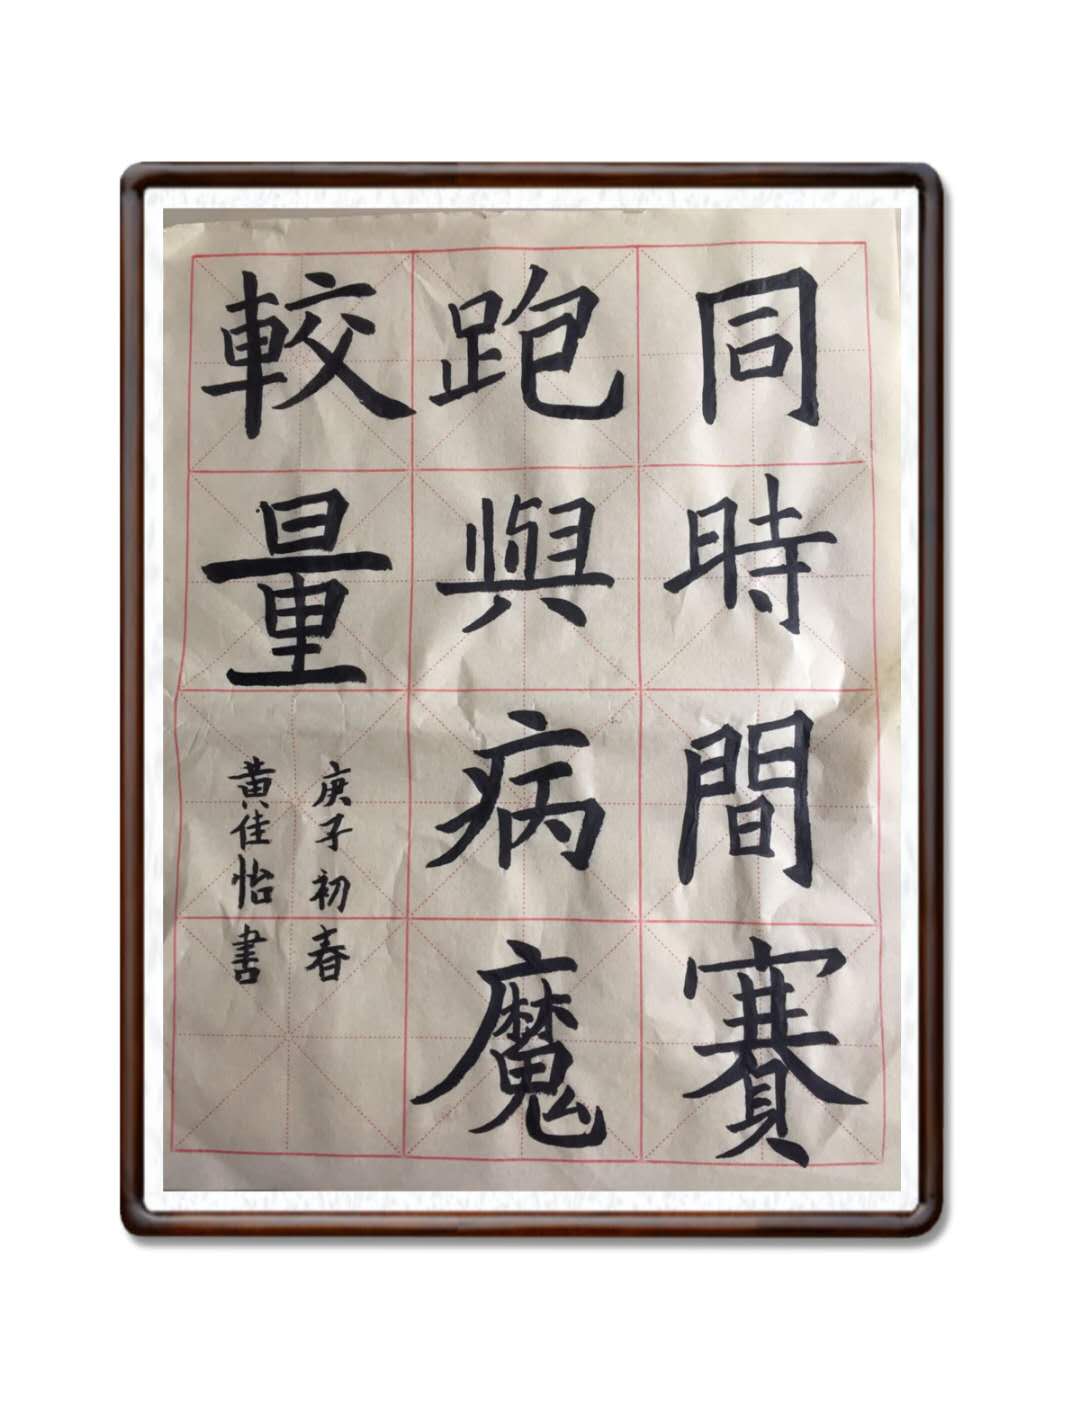 同時間賽
跑與病魔
較量
庚子初春
黄佳怡書